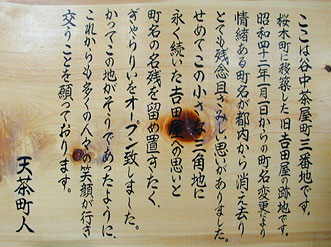 ここは谷中茶屋町三番地です。
桜木町に移築した旧吉田屋の跡地です。
昭和四十二年一月一日からの町名変更より
情緒ある町名が都内から消え去り
とても残念且さみしい思いがありました。
せめてこの小さな三角地に
永く続いた吉田屋への思いと
町名の名残を留め置きたく、
ぎゃらりいをオープン致しました。
かってこの地がそうであったように、
これからも多くの人々の笑顔が行き
交うことを願っております。
天茶町人